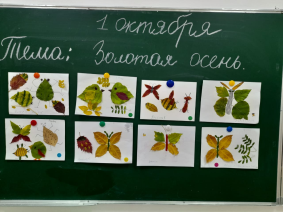 1 октября
Тема: Золотая осень.